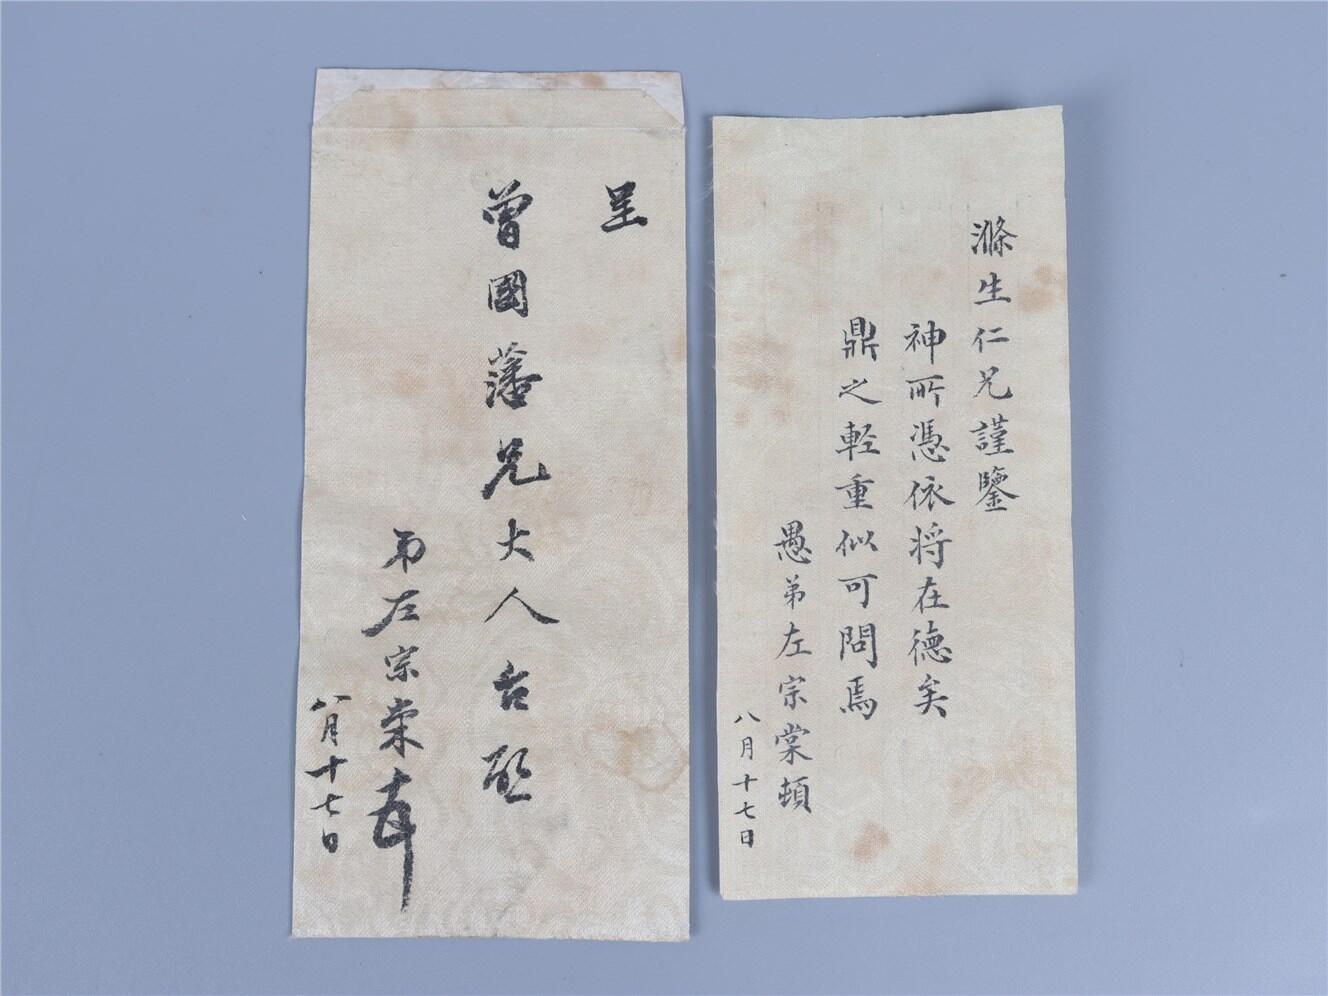 呈
曾國藩兄大人台啟
弟左宗棠
八月十七日
滌生仁兄謹鑒
神所憑依將在德矣
鼎之輕重似可問焉
愚弟左宗棠頓
八月十七日